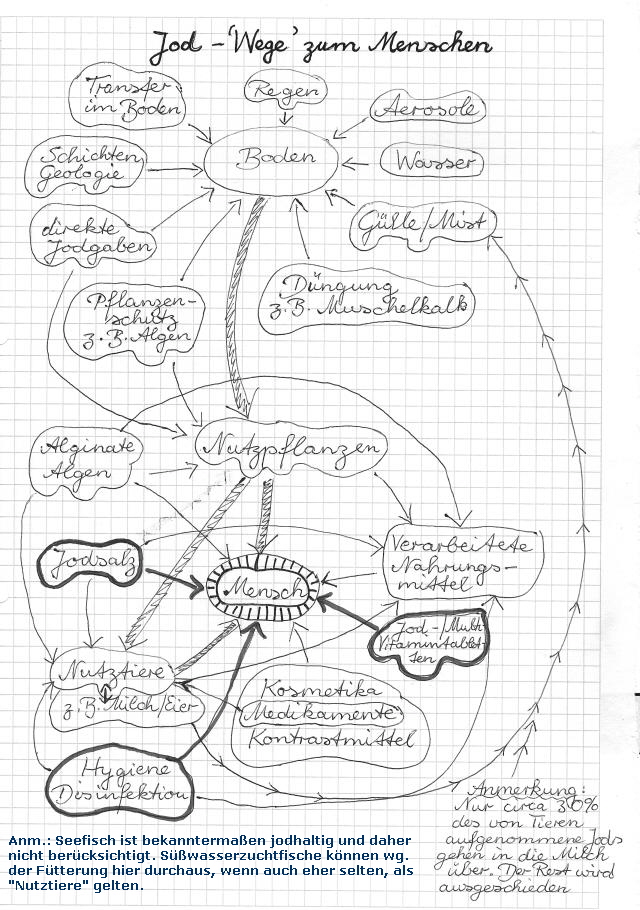 Jod - 'Wege' zum Menschen
Transfer
im Boden
Regen
Aerosole
Schichten
Geologie
Boden
Wasser
direkte
Jodgaben
Gülle/Mist
Pflanzen-
schutz
z.B. Algen
Düngung
z.B. Muschelkalk
Alginate
Algen
Nutzpflanzen
Jodsalz
Verarbeitete
Nahrungs-
mittel
Mensch
Jod-/Multi
Vitamintablet-
ten
Nutztiere
z.B. Milch/Eier
Kosmetika
Medikamente
Kontrastmittel
Hygiene
Disinfektion
Anmerkung:
Nur circa 30%
des von Tieren
aufgenommene Jods
gehen in die Milch
über. Der Rest wird
ausgeschieden
Anm.: Seefisch ist bekanntermaßen jodhaltig und daher
nicht berücksichtigt. Süßwasserzuchtfische können wg.
der Fütterung hier durchaus, wenn auch eher selten, als
"Nutztiere" gelten.